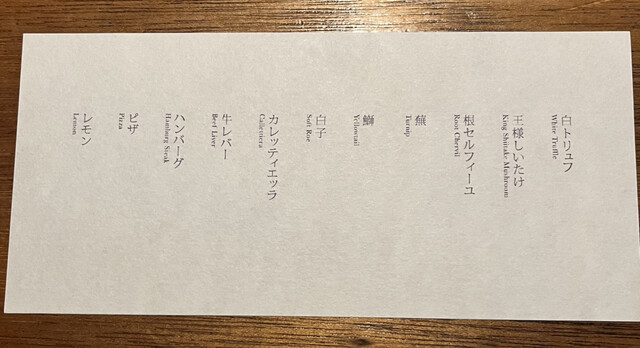 白トリュフ
White Truffle
王様しいたけ
King Shiitake Mushroom
根セルフィーユ
Root Chervil
蕪
Turnip
鰤
Yellowtail
白子
Soft Roe
カレッティエッラ
Calletiera
牛レバー
Beef Liver
ハンバーグ
Hamburg Steak
ピザ
Pizza
レモン
Lemon